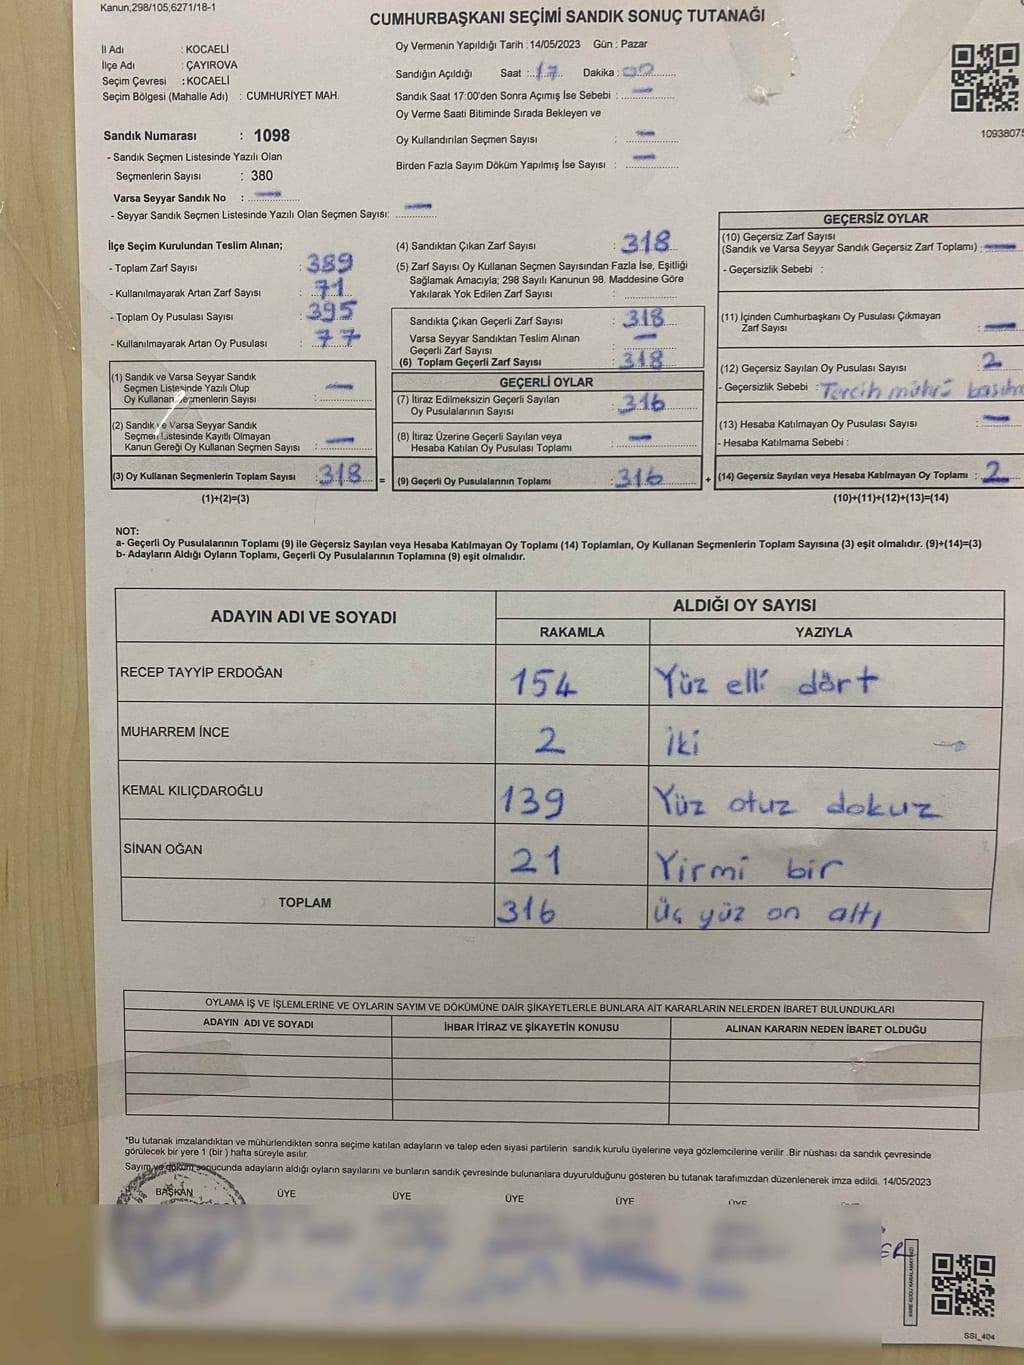 Kanun,298/105,6271/18-1
CUMHURBAŞKANI SEÇİMİ SANDIK SONUÇ TUTANAĞI
İl Adı : KOCAELİ
İlçe Adı : ÇAYIROVA
Seçim Çevresi : KOCAELİ
Seçim Bölgesi (Mahalle Adı) : CUMHURİYET MAH.
Oy Vermenin Yapıldığı Tarih :14/05/2023 Gün : Pazar
Sandığın Açıldığı Saat : 17 Dakika : 00
Sandık Saat 17:00'den Sonra Açımış İse Sebebi : —
Oy Verme Saati Bitiminde Sırada Bekleyen ve
Oy Kullandırılan Seçmen Sayısı : —
Birden Fazla Sayım Döküm Yapılmış İse Sayısı : —
10938075
Sandık Numarası : 1098
- Sandık Seçmen Listesinde Yazılı Olan
Seçmenlerin Sayısı : 380
Varsa Seyyar Sandık No : —
- Seyyar Sandık Seçmen Listesinde Yazılı Olan Seçmen Sayısı: —
İlçe Seçim Kurulundan Teslim Alınan;
- Toplam Zarf Sayısı : 389
- Kullanılmayarak Artan Zarf Sayısı : 71
- Toplam Oy Pusulası Sayısı : 395
- Kullanılmayarak Artan Oy Pusulası : 77
(1) Sandık ve Varsa Seyyar Sandık
Seçmen Listesinde Yazılı Olup
Oy Kullanan Seçmenlerin Sayısı : —
(2) Sandık ve Varsa Seyyar Sandık
Seçmen Listesinde Kayıtlı Olmayan
Kanun Gereği Oy Kullanan Seçmen Sayısı : —
(3) Oy Kullanan Seçmenlerin Toplam Sayısı : 318 =
(1)+(2)=(3)
(4) Sandıktan Çıkan Zarf Sayısı : 318
(5) Zarf Sayısı Oy Kullanan Seçmen Sayısından Fazla İse, Eşitliği
Sağlamak Amacıyla; 298 Sayılı Kanunun 98. Maddesine Göre
Yakılarak Yok Edilen Zarf Sayısı :
Sandıkta Çıkan Geçerli Zarf Sayısı : 318
Varsa Seyyar Sandıktan Teslim Alınan
Geçerli Zarf Sayısı : —
(6) Toplam Geçerli Zarf Sayısı : 318
GEÇERLİ OYLAR
(7) İtiraz Edilmeksizin Geçerli Sayılan
Oy Pusulalarının Sayısı : 316
(8) İtiraz Üzerine Geçerli Sayılan veya
Hesaba Katılan Oy Pusulası Toplamı : —
(9) Geçerli Oy Pusulalarının Toplamı : 316 +
GEÇERSİZ OYLAR
(10) Geçersiz Zarf Sayısı
(Sandık ve Varsa Seyyar Sandık Geçersiz Zarf Toplamı) : —
- Geçersizlik Sebebi :
(11) İçinden Cumhurbaşkanı Oy Pusulası Çıkmayan
Zarf Sayısı : —
(12) Geçersiz Sayılan Oy Pusulası Sayısı : 2
- Geçersizlik Sebebi : Tercih mührü
(13) Hesaba Katılmayan Oy Pusulası Sayısı : —
- Hesaba Katılmama Sebebi :
(14) Geçersiz Sayılan veya Hesaba Katılmayan Oy Toplamı : 2
(10)+(11)+(12)+(13)=(14)
NOT:
a- Geçerli Oy Pusulalarının Toplamı (9) ile Geçersiz Sayılan veya Hesaba Katılmayan Oy Toplamı (14) Toplamları, Oy Kullanan Seçmenlerin Toplam Sayısına (3) eşit olmalıdır. (9)+(14)=(3)
b- Adayların Aldığı Oyların Toplamı, Geçerli Oy Pusulalarının Toplamına (9) eşit olmalıdır.
ADAYIN ADI VE SOYADI ALDIĞI OY SAYISI
RAKAMLA YAZIYLA
RECEP TAYYİP ERDOĞAN 154 Yüz elli dört
MUHARREM İNCE 2 İki
KEMAL KILIÇDAROĞLU 139 Yüz otuz dokuz
SİNAN OĞAN 21 Yirmi bir
TOPLAM 316 Üç yüz on altı
OYLAMA İŞ VE İŞLEMLERİNE VE OYLARIN SAYIM VE DÖKÜMÜNE DAİR ŞİKAYETLERLE BUNLARA AİT KARARLARIN NELERDEN İBARET BULUNDUKLARI
ADAYIN ADI VE SOYADI İHBAR İTİRAZ VE ŞİKAYETİN KONUSU ALINAN KARARIN NEDEN İBARET OLDUĞU
*Bu tutanak imzalandıktan ve mühürlendikten sonra seçime katılan adayların ve talep eden siyasi partilerin sandık kurulu üyelerine veya gözlemcilerine verilir .Bir nüshası da sandık çevresinde
görülecek bir yere 1 (bir ) hafta süreyle asılır.
Sayım ve döküm sonucunda adayların aldığı oyların sayılarını ve bunların sandık çevresinde bulunanlara duyurulduğunu gösteren bu tutanak tarafımızdan düzenlenerek imza edildi. 14/05/2023
BAŞKAN ÜYE ÜYE ÜYE ÜYE ÜYE
SSI_404